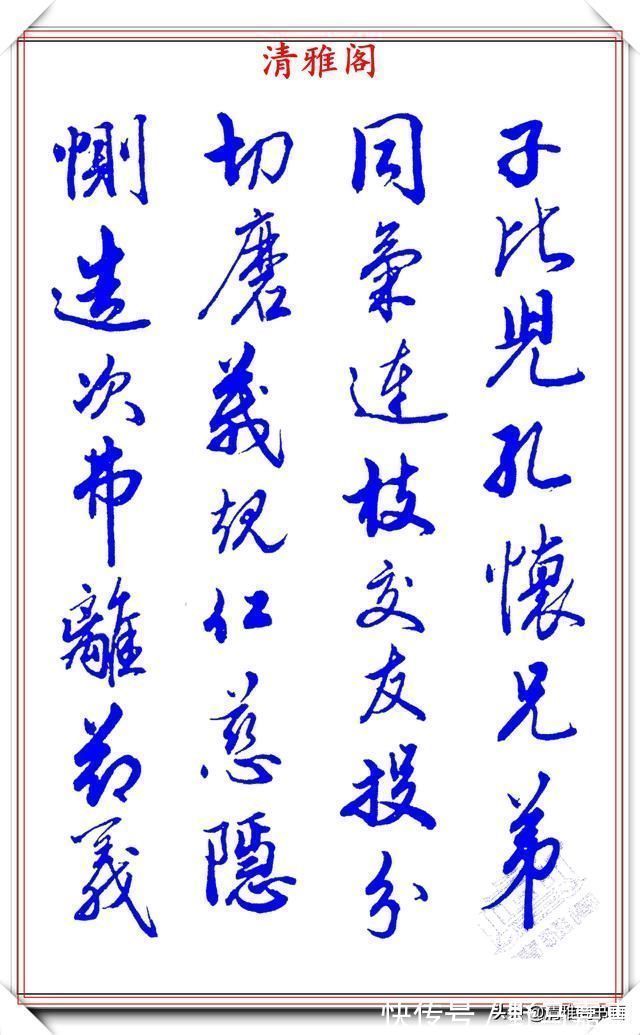 清雅阁
子比兒孔懷兄弟
同氣連枝交友投分
切磨箴規仁慈隱
惻造次弗離節義
快传号